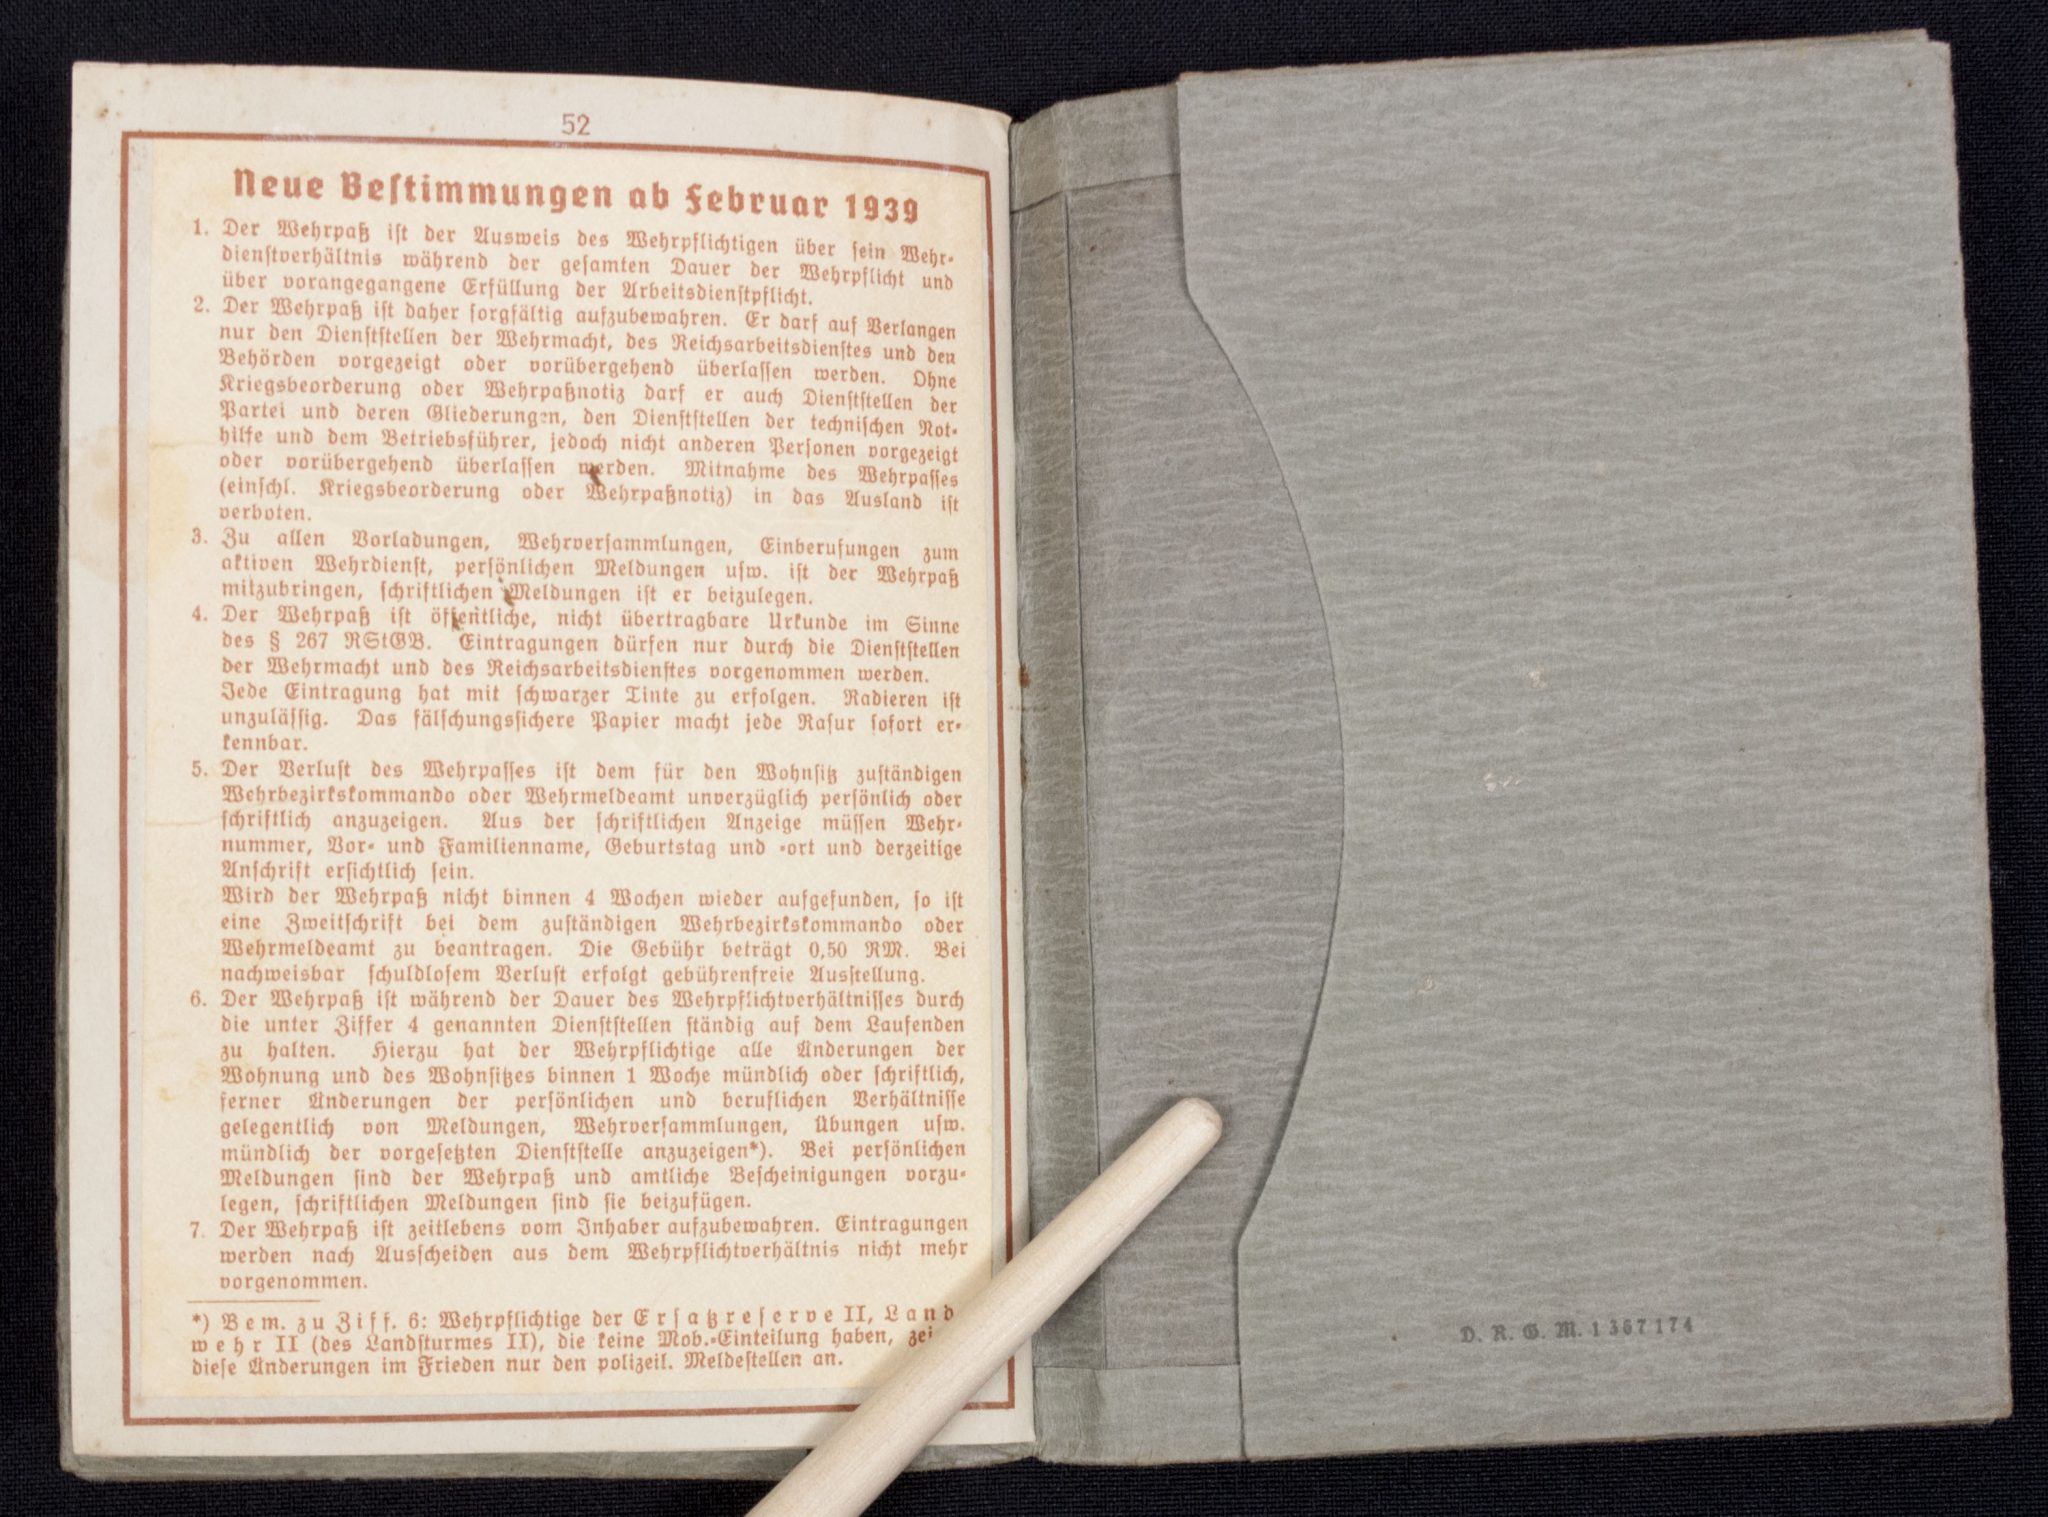 52
Neue Bestimmungen ab Februar 1939
1. Der Wehrpaß ist der Ausweis des Wehrpflichtigen über sein Wehr-
dienstverhältnis während der gesamten Dauer der Wehrpflicht und
über vorangegangene Erfüllung der Arbeitsdienstpflicht.
2. Der Wehrpaß ist daher sorgfältig aufzubewahren. Er darf auf Verlangen
nur den Dienststellen der Wehrmacht, des Reichsarbeitsdienstes und den
Behörden vorgezeigt oder vorübergehend überlassen werden. Ohne
Kriegsbeorderung oder Wehrpaßnotiz darf er auch Dienststellen der
Partei und deren Gliederungen, den Dienststellen der technischen Not-
hilfe und dem Betriebsführer, jedoch nicht anderen Personen vorgezeigt
oder vorübergehend überlassen werden. Mitnahme des Wehrpasses
(einschl. Kriegsbeorderung oder Wehrpaßnotiz) in das Ausland ist
verboten.
3. Zu allen Vorladungen, Wehrversammlungen, Einberufungen zum
aktiven Wehrdienst, persönlichen Meldungen usw. ist der Wehrpaß
mitzubringen, schriftlichen Meldungen ist er beizulegen.
4. Der Wehrpaß ist öffentliche, nicht übertragbare Urkunde im Sinne
des § 267 RStGB. Eintragungen dürfen nur durch die Dienststellen
der Wehrmacht und des Reichsarbeitsdienstes vorgenommen werden.
Jede Eintragung hat mit schwarzer Tinte zu erfolgen. Radieren ist
unzulässig. Das fälschungssichere Papier macht jede Rasur sofort er-
kennbar.
5. Der Verlust des Wehrpasses ist dem für den Wohnsitz zuständigen
Wehrbezirkskommando oder Wehrmeldeamt unverzüglich persönlich oder
schriftlich anzuzeigen. Aus der schriftlichen Anzeige müssen Wehr-
nummer, Vor- und Familienname, Geburtstag und -ort und derzeitige
Anschrift ersichtlich sein.
Wird der Wehrpaß nicht binnen 4 Wochen wieder aufgefunden, so ist
eine Zweitschrift bei dem zuständigen Wehrbezirkskommando oder
Wehrmeldeamt zu beantragen. Die Gebühr beträgt 0,50 RM. Bei
nachweisbar schuldlosem Verlust erfolgt gebührenfreie Ausstellung.
6. Der Wehrpaß ist während der Dauer des Wehrpflichtverhältnisses durch
die unter Ziffer 4 genannten Dienststellen ständig auf dem Laufenden
zu halten. Hierzu hat der Wehrpflichtige alle Änderungen der
Wohnung und des Wohnsitzes binnen 1 Woche mündlich oder schriftlich,
ferner Änderungen der persönlichen und beruflichen Verhältnisse
gelegentlich von Meldungen, Wehrversammlungen, Übungen usw.
mündlich der vorgesetzten Dienststelle anzuzeigen*). Bei persönlichen
Meldungen sind der Wehrpaß und amtliche Bescheinigungen vorzu-
legen, schriftlichen Meldungen sind sie beizufügen.
7. Der Wehrpaß ist zeitlebens vom Inhaber aufzubewahren. Eintragungen
werden nach Ausscheiden aus dem Wehrpflichtverhältnis nicht mehr
vorgenommen.
*) Bem. zu Ziff. 6: Wehrpflichtige der Ersatzreserve II, Land
wehr II (des Landsturmes II), die keine Mob.-Einteilung haben,
diese Änderungen im Frieden nur den polizeil. Meldestellen an.
D. R. G. M. 1367174